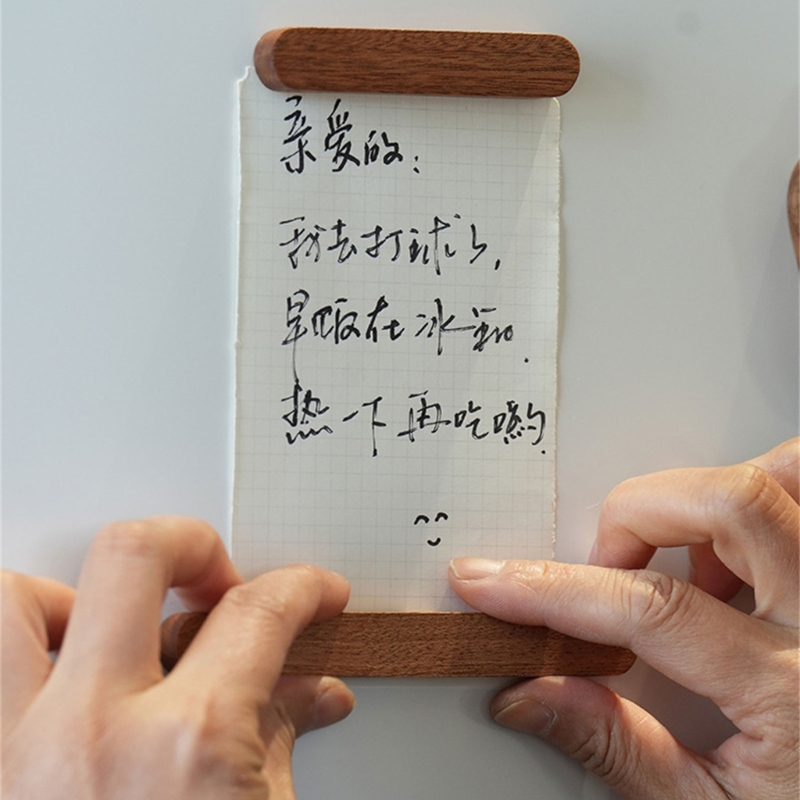 亲爱的：
我去打球了，
早饭在冰箱.
热一下再吃哟.